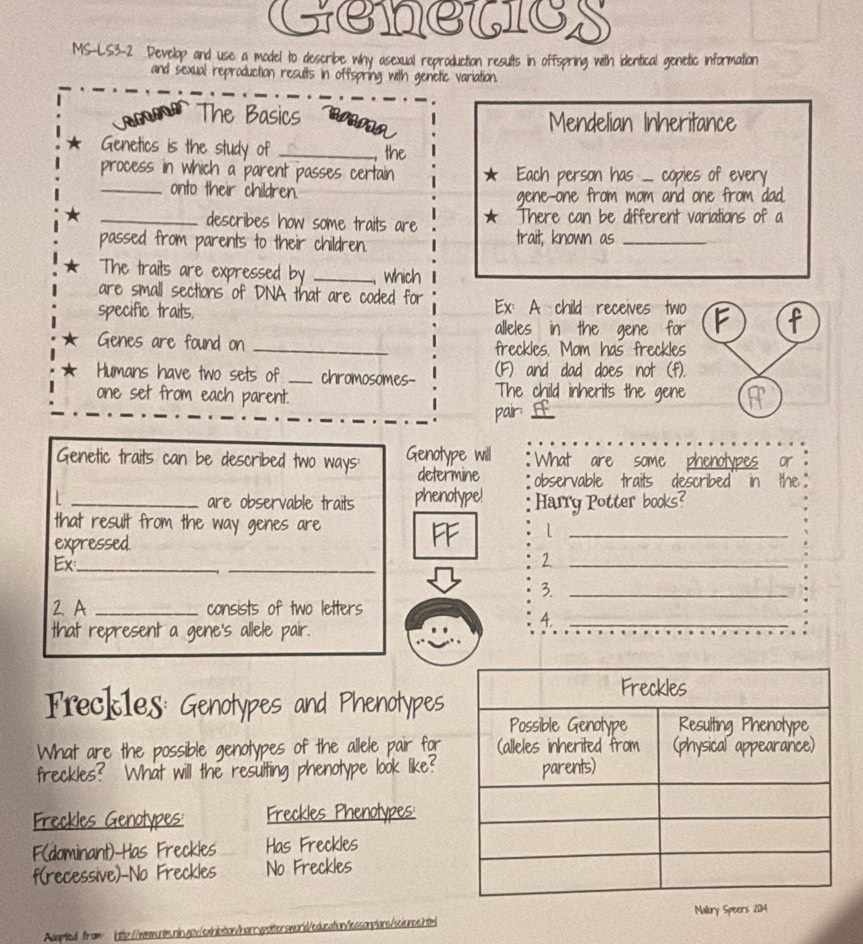 Genetics
MS-LS3-2 Develop and use a model to describe why asexual reproduction results in offspring with identical genetic information
and sexual reproduction results in offspring with genetic variation.
The Basics
★ Genetics is the study of __________, the
process in which a parent passes certain
______ onto their children.
★ __________ describes how some traits are
passed from parents to their children.
★ The traits are expressed by ______, which
are small sections of DNA that are coded for
specific traits.
★ Genes are found on ______________
★ Humans have two sets of ___ chromosomes-
one set from each parent.
Mendelian Inheritance
★ Each person has _ copies of every
gene-one from mom and one from dad.
★ There can be different variations of a
trait, known as _________
Ex: A child receives two
alleles in the gene for
freckles. Mom has freckles
(F) and dad does not (f).
The child inherits the gene
pair: Ff
F f
Ff
Genetic traits can be described two ways:
1. ______________ are observable traits
that result from the way genes are
expressed.
Ex:______________, ______________
2. A __________ consists of two letters
that represent a gene's allele pair.
Genotype will
determine
phenotype!
FF
What are some phenotypes or
observable traits described in the
Harry Potter books?
1. ______________________
2. ______________________
3. ______________________
4. ______________________
Freckles: Genotypes and Phenotypes
What are the possible genotypes of the allele pair for
freckles? What will the resulting phenotype look like?
Freckles Genotypes:
F(dominant)-Has Freckles
f(recessive)-No Freckles
Freckles Phenotypes:
Has Freckles
No Freckles
Freckles
Possible Genotype
(alleles inherited from
parents)
Resulting Phenotype
(physical appearance)
Mallory Speers 2014
Adapted from: http://www.nlm.nih.gov/exhibition/harrypottersworld/education/lessonplans/science.html